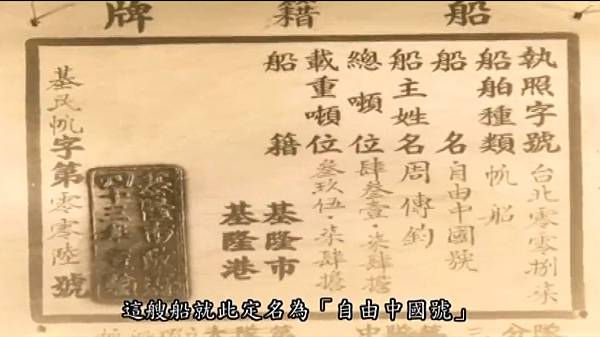 船籍牌
執照字號 台北零零捌柒
船舶種類 帆船
船名 自由中國號
船主姓名 周傳鈞
總噸位 肆叁壹·柒肆擔
載重噸位 叁玖伍·柒肆擔
船籍 基隆市
基隆港
基民帆字第零零陸號
這艘船就此定名為「自由中國號」